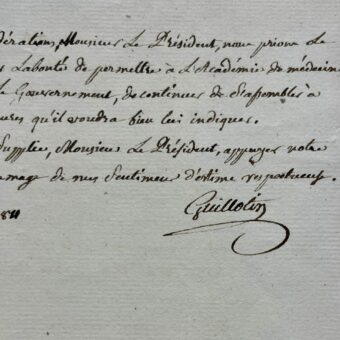 dérations, Monsieur Le Président, nous prions Le
Labonté de permettre à L'Académie de médecine
Le Gouvernement, de continuer de S'assembler à
ures qu'il voudra bien lui indiquer.
Supplie, Monsieur Le Président, appuyer votre
mage de nos Sentimens d'estime respectueuse.
Guillotin
811